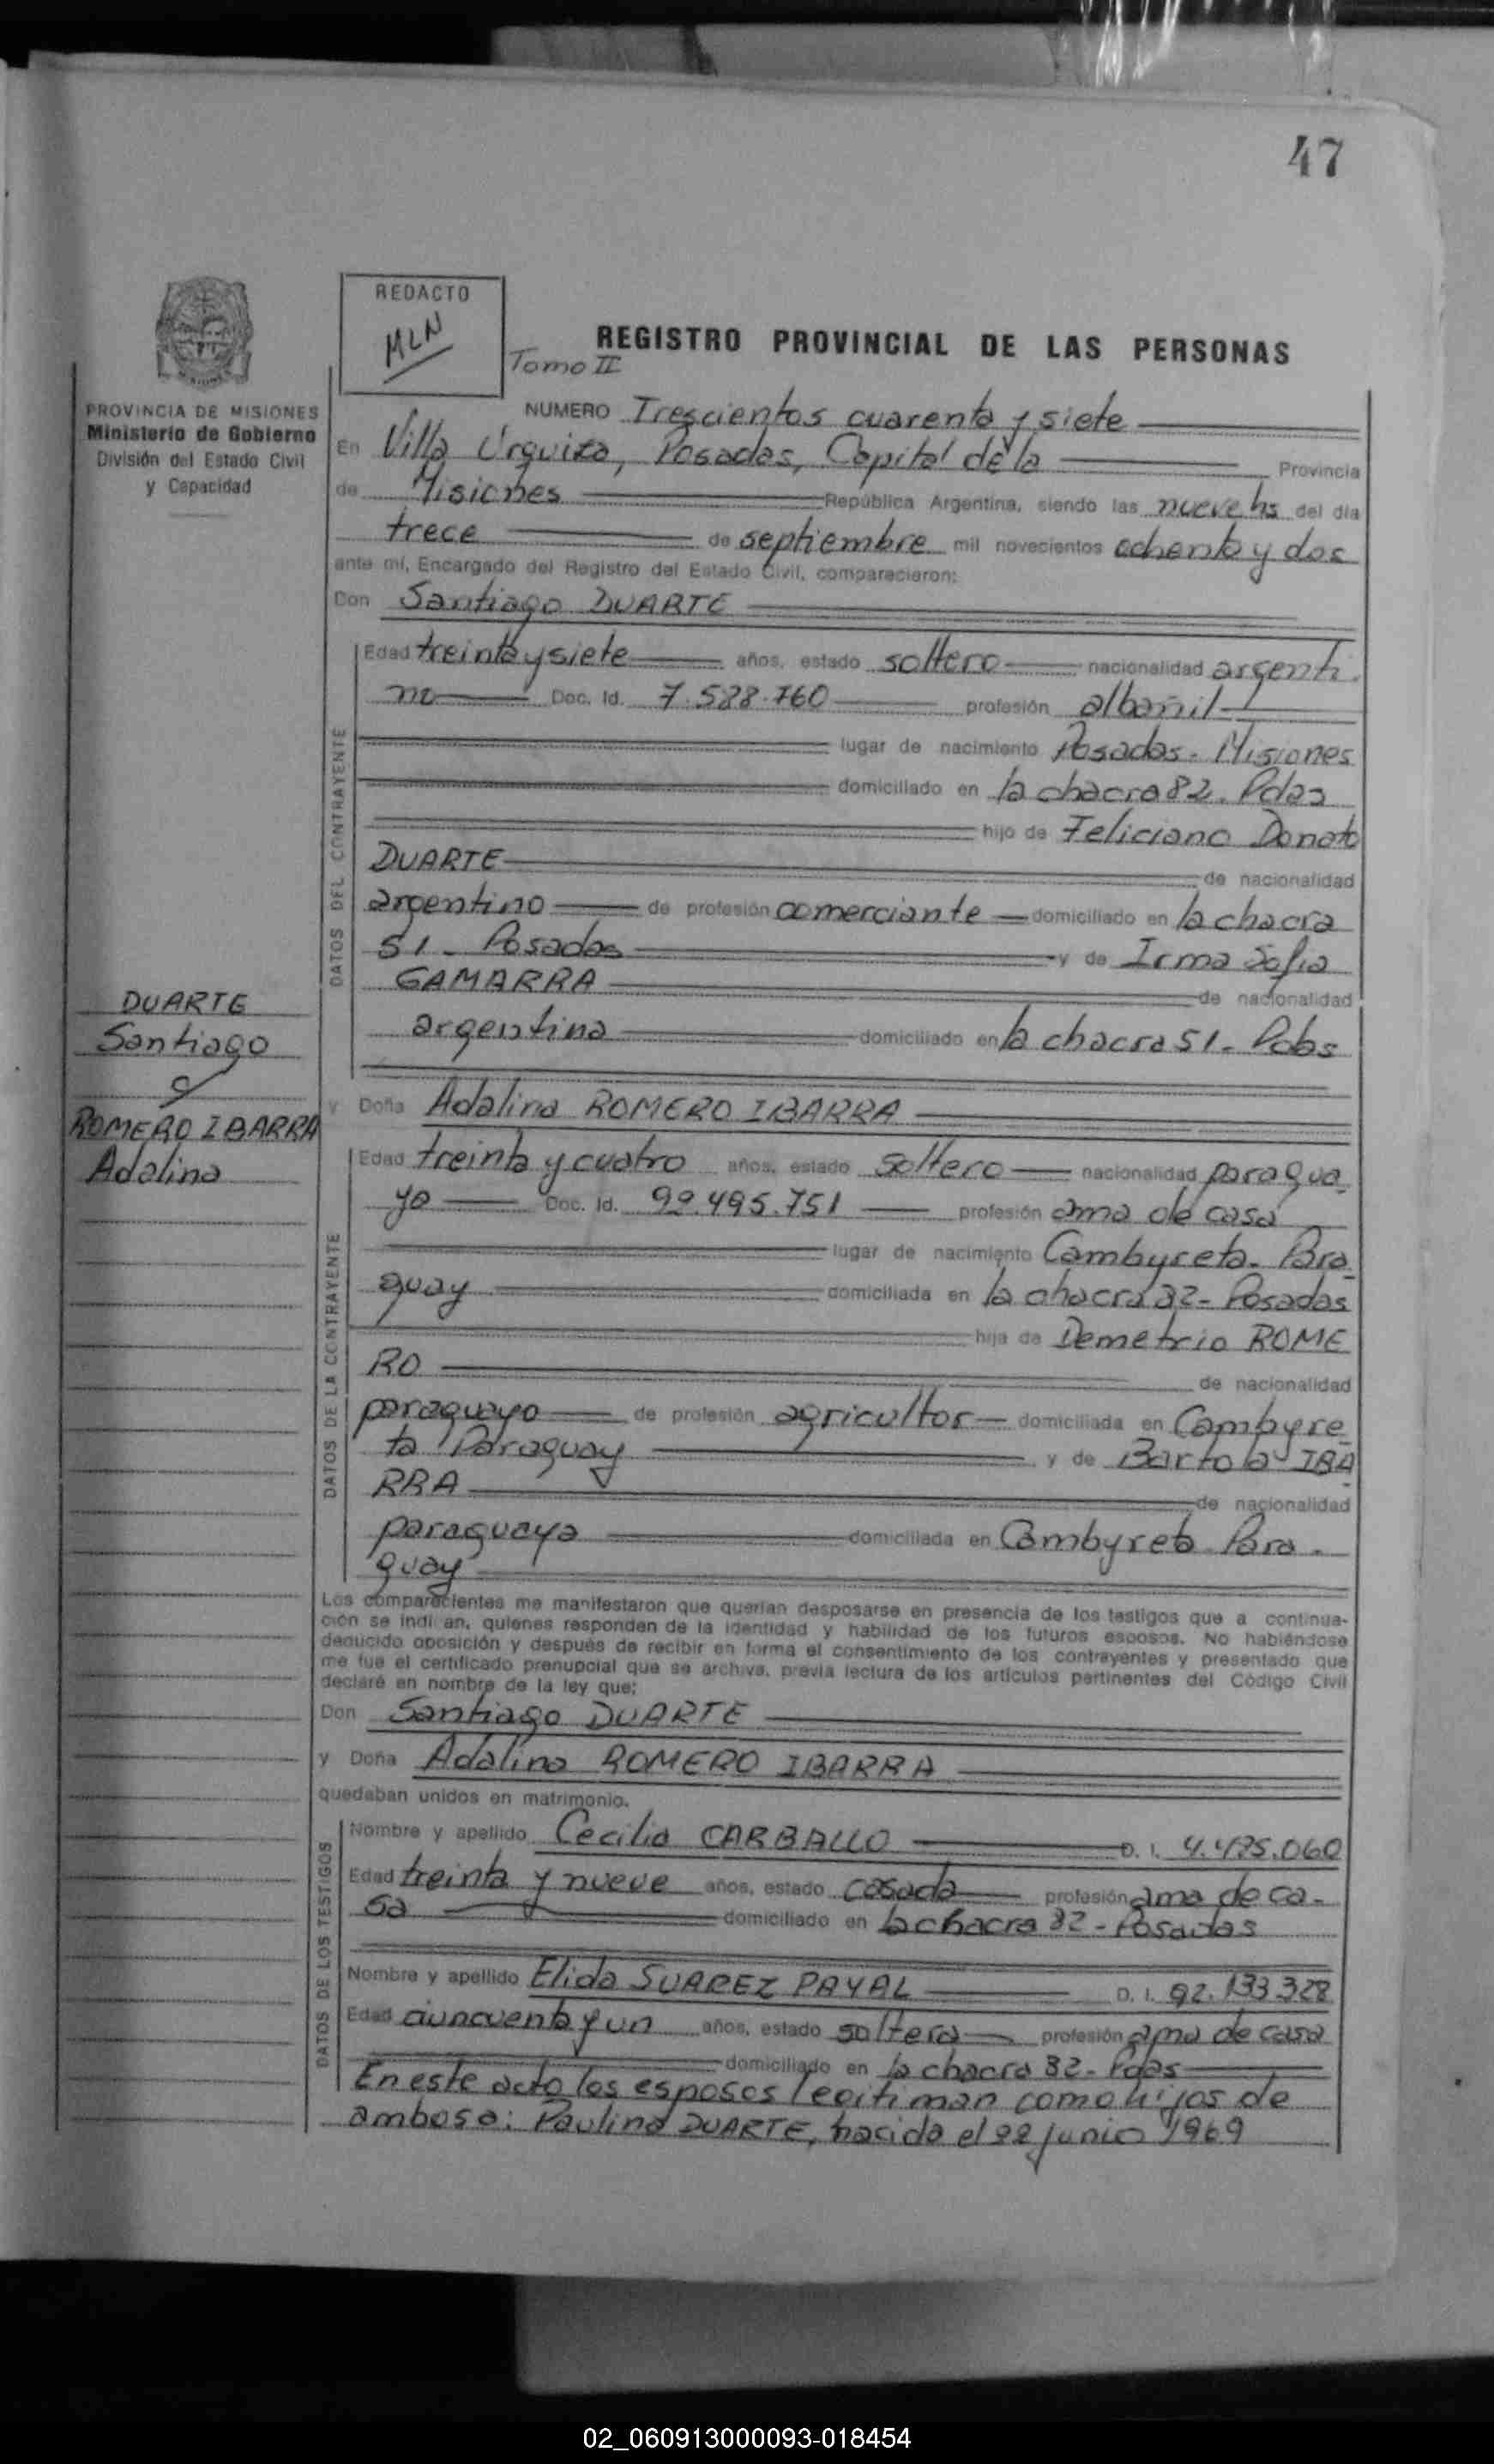 47
REDACTO
MLN
REGISTRO PROVINCIAL DE LAS PERSONAS
Tomo II
PROVINCIA DE MISIONES
Ministerio de Gobierno
División del Estado Civil
y Capacidad
NUMERO Trescientos cuarenta y siete
En Villa Urquiza, Posadas, Capital de la Provincia
de Misiones República Argentina, siendo las nueve hs del día
trece de septiembre mil novecientos ochenta y dos
ante mí, Encargado del Registro del Estado Civil, comparecieron:
Don Santiago DUARTE
DATOS DEL CONTRAYENTE
Edad treinta y siete años, estado soltero nacionalidad argenti
no Doc. Id. 7.588.760 profesión albañil
lugar de nacimiento Posadas - Misiones
domiciliado en la chacra 82. Pdas
hijo de Feliciano Donato
DUARTE de nacionalidad
argentino de profesión comerciante domiciliado en la chacra
51 - Posadas y de Irma Sofia
GAMARRA de nacionalidad
argentina domiciliado en la chacra 51 - Pdas
DUARTE
Santiago
y
ROMERO IBARRA
Adalina
y Doña Adalina ROMERO IBARRA
DATOS DE LA CONTRAYENTE
Edad treinta y cuatro años, estado soltero nacionalidad paragua
ya Doc. Id. 92.495.751 profesión ama de casa
lugar de nacimiento Cambyreta - Para
guay domiciliada en la chacra 82 - Posadas
hija de Demetrio ROME
RO de nacionalidad
paraguayo de profesión agricultor domiciliada en Cambyre
ta Paraguay y de Bartola IBA
RRA de nacionalidad
paraguaya domiciliada en Cambyreta Para
guay
Los comparecientes me manifestaron que querían desposarse en presencia de los testigos que a continua-
ción se indi an, quienes responden de la identidad y habilidad de los futuros esposos. No habiéndose
deducido oposición y después de recibir en forma el consentimiento de los contrayentes y presentado que
me fue el certificado prenupcial que se archiva, previa lectura de los artículos pertinentes del Código Civil
declaré en nombre de la ley que:
Don Santiago DUARTE
y Doña Adalina ROMERO IBARRA
quedaban unidos en matrimonio.
DATOS DE LOS TESTIGOS
Nombre y apellido Cecilia CARBALLO D. I. 4.475.060
Edad treinta y nueve años, estado casada profesión ama de ca-
sa domiciliado en la chacra 82 - Posadas
Nombre y apellido Elida SUAREZ PAYAL D. I. 92.133.328
Edad cincuenta y un años, estado soltera profesión ama de casa
domiciliado en la chacra 82 - Pdas
En este acto los esposos legitiman como hijos de
ambos a: Paulina DUARTE, nacida el 22 junio 1969
02_060913000093-018454